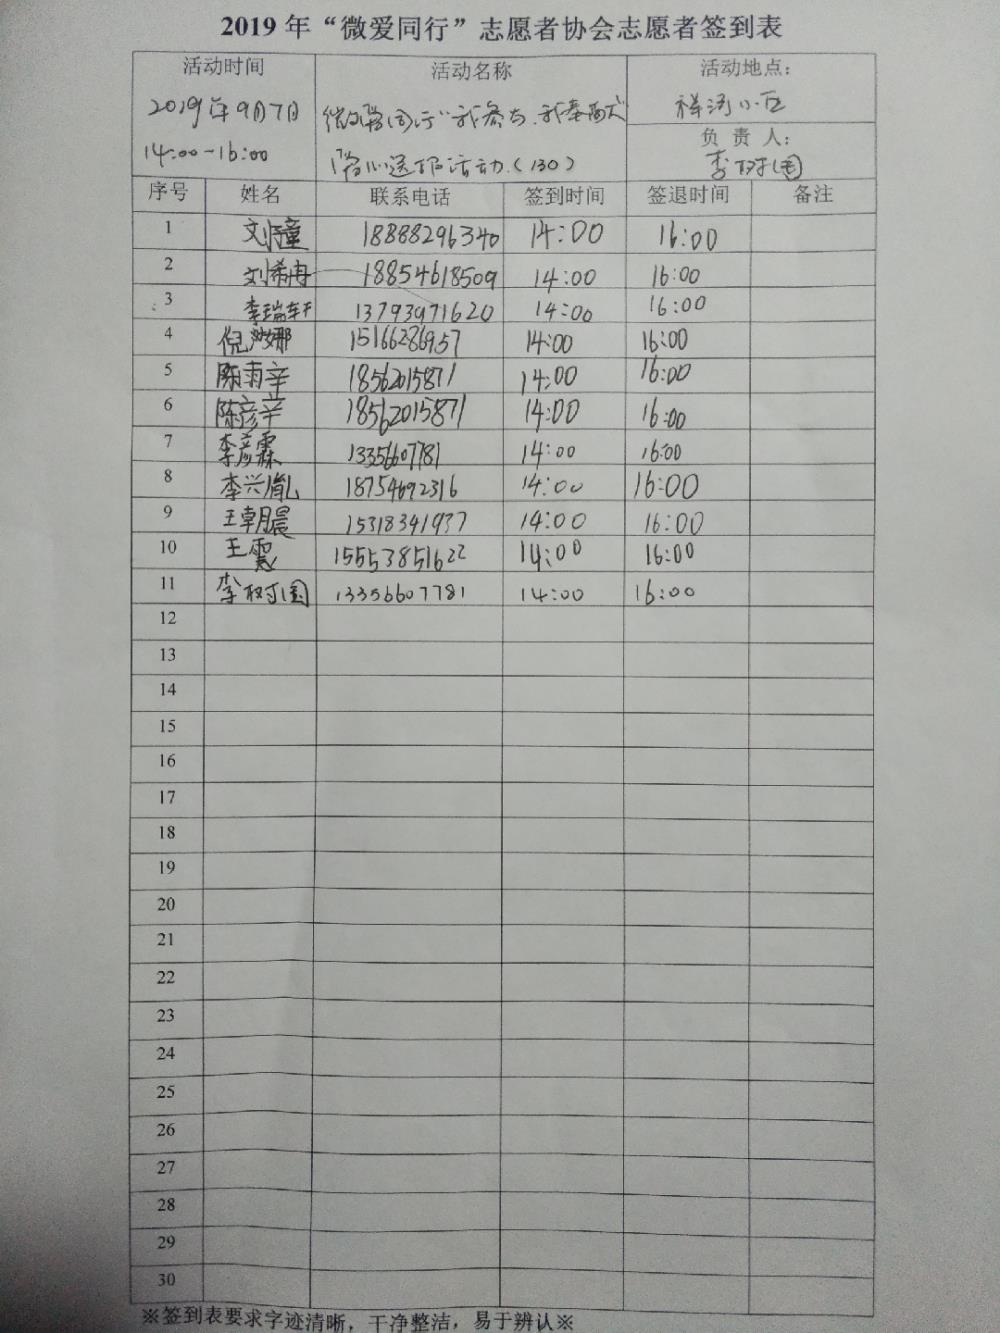 2019年“微爱同行”志愿者协会志愿者签到表
活动时间 活动名称 活动地点：
2019年9月7日 微爱同行“我参与.我奉献” 祥河小区
14:00-16:00 爱心送报活动.(130) 负责人： 李树国
序号 姓名 联系电话 签到时间 签退时间 备注
1 刘瞳 18888296340 14:00 16:00
2 刘希冉 18854618509 14:00 16:00
3 李瑞轩 13793971620 14:00 16:00
4 倪娜 15166286957 14:00 16:00
5 陈雨辛 18562015871 14:00 16:00
6 陈彦辛 18562015871 14:00 16:00
7 李彦霖 13356607781 14:00 16:00
8 李兴胤 18754692316 14:00 16:00
9 王朝晨 15318341937 14:00 16:00
10 王震 15553851622 14:00 16:00
11 李树国 13356607781 14:00 16:00
12
13
14
15
16
17
18
19
20
21
22
23
24
25
26
27
28
29
30
※签到表要求字迹清晰，干净整洁，易于辨认※